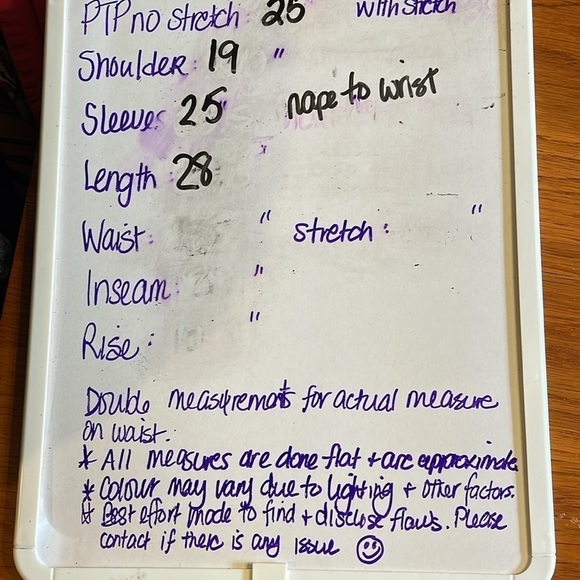 PTP no stretch: 25 with stretch
Shoulder: 19 "
Sleeves 25 nape to wrist
Length: 28 "
Waist: " stretch: "
Inseam: "
Rise: "
Double measurements for actual measure
on waist.
* All measures are done flat + are approximate
* Colour may vary due to lighting + other factors.
* Best effort made to find + disclose flaws. Please
contact if there is any issue ☺